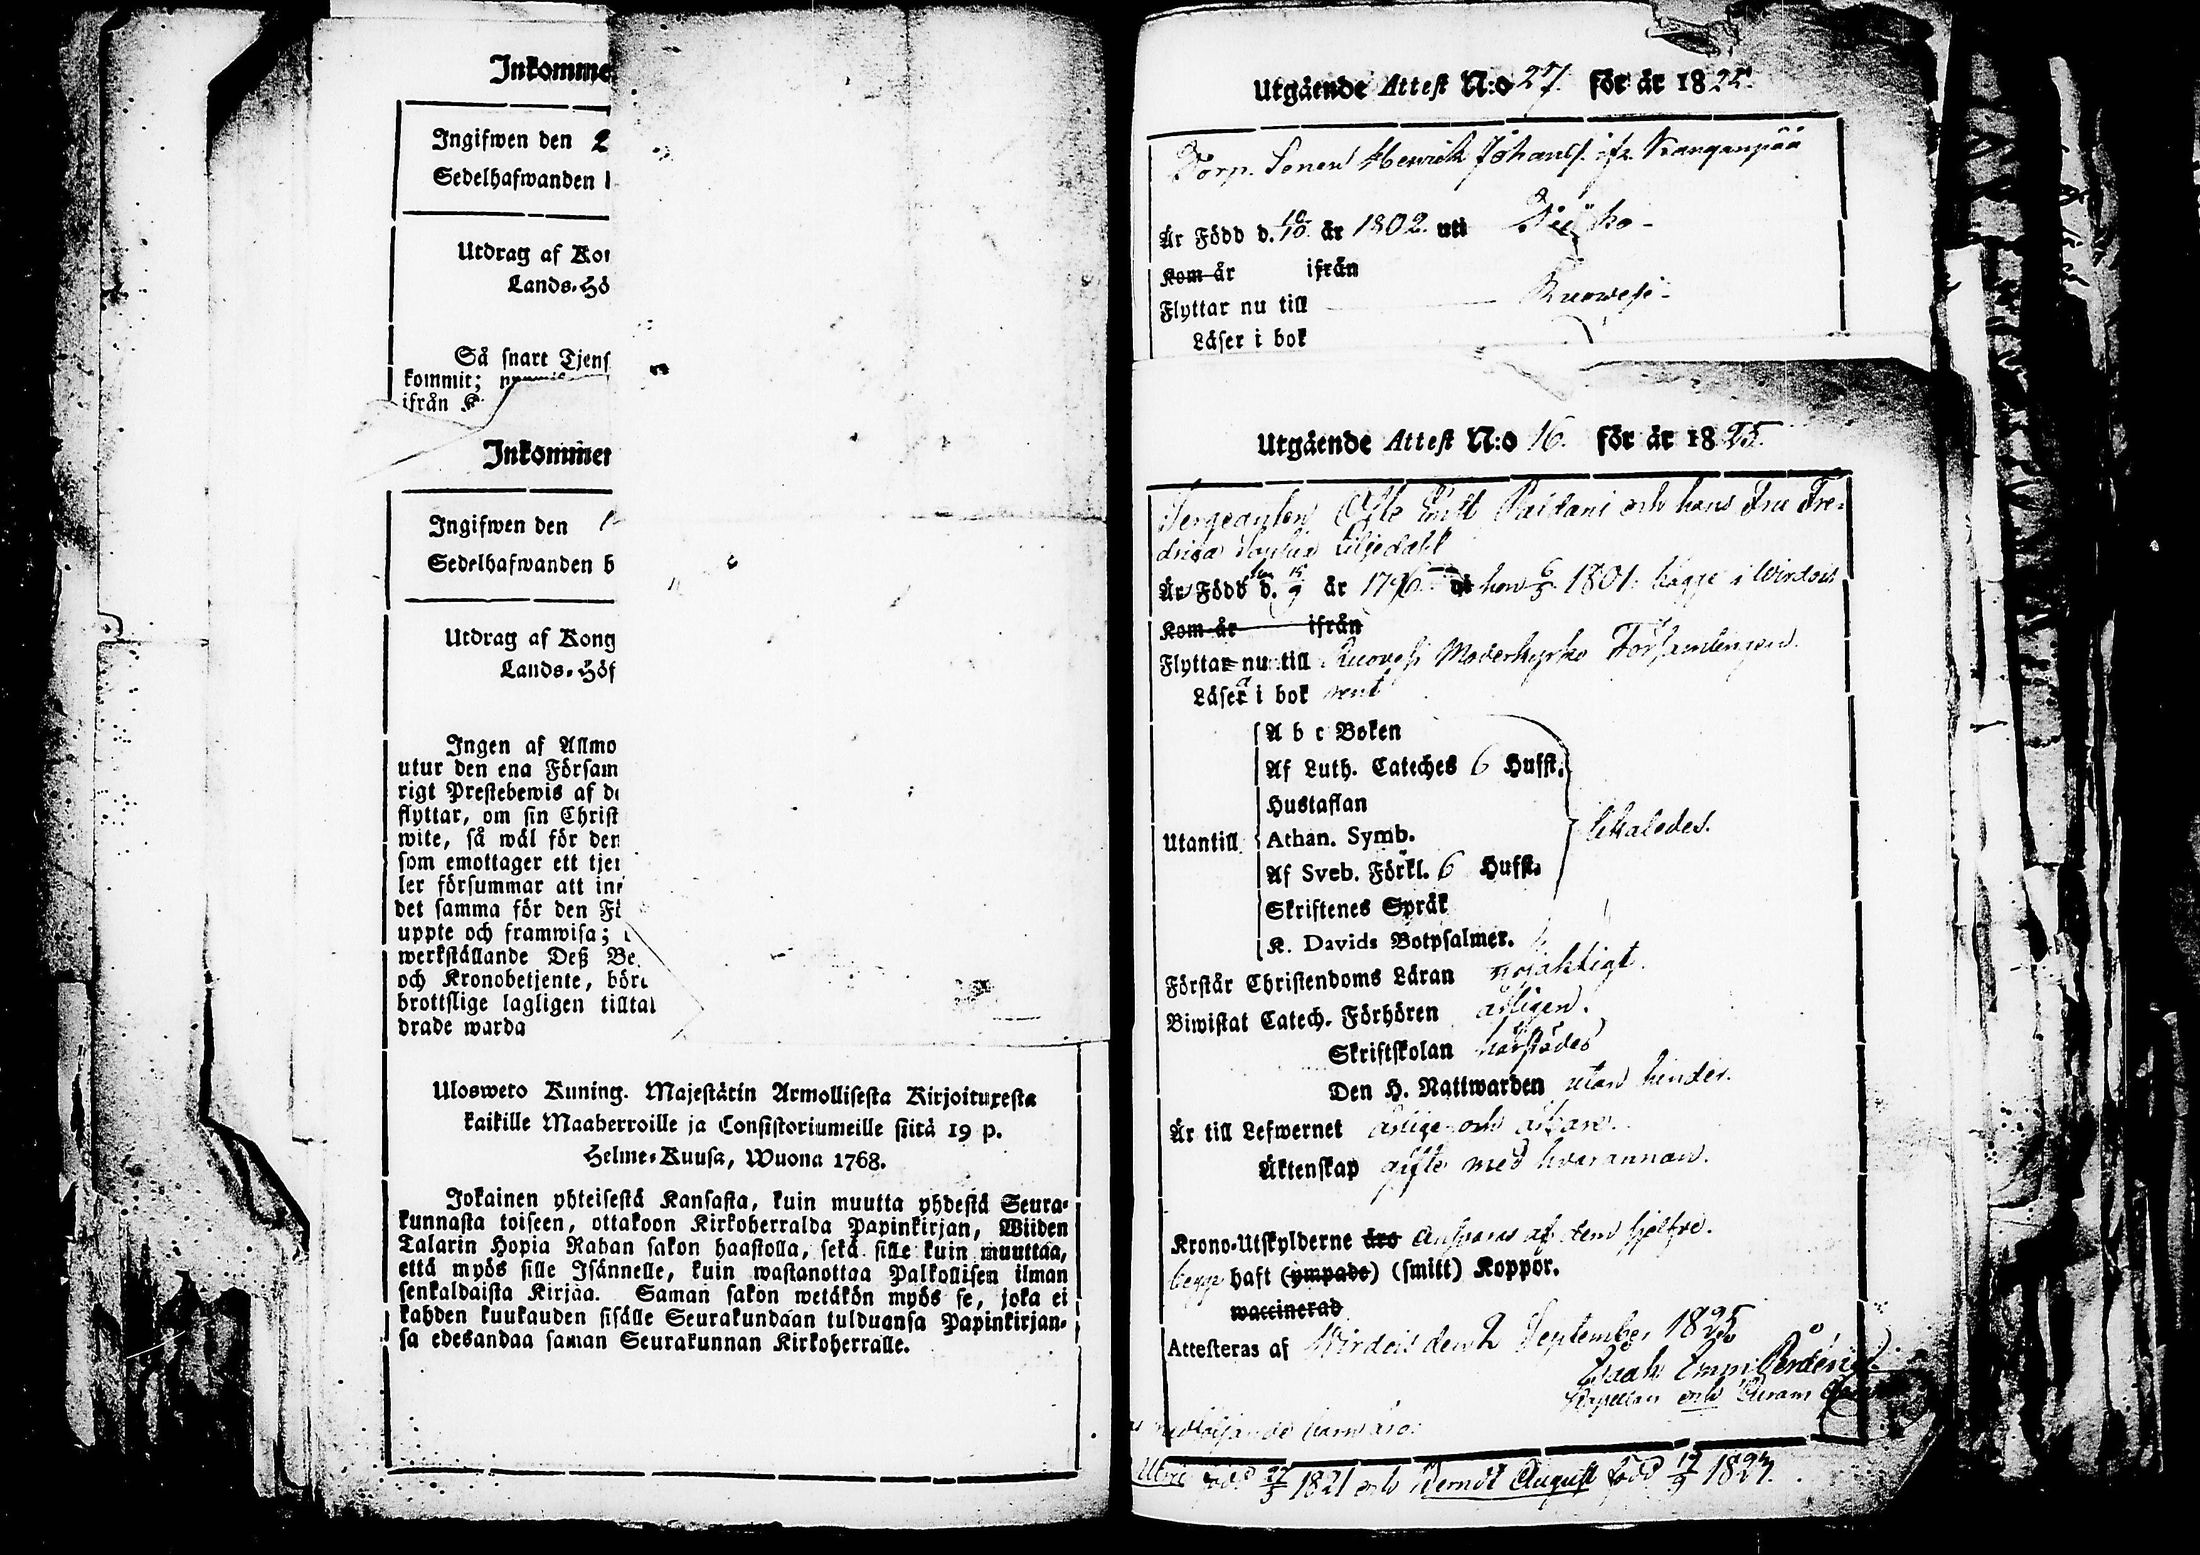 Inkomme
Ingifwen den 2
Sedelhafwanden
Utdrag af Ko
Lands-Hö
Så snart Tjens
kommit;
ifrån K
Inkommen
Ingifwen den
Sedelhafwanden b
Utdrag af Kong
Lands-Höf
Ingen af Allmo
utur den ena Försam
rigt Prestebewis af d
flyttar, om sin Christ
wite, så wäl för den
som emottager ett tje
ler försummar att in
det samma för den Fö
uppte och framwisa;
werkställande Deß Be
och Kronobetjente, böra
brottslige lagligen tilltal
drade warda
Uloswето Kuning. Majestätin Armollisesta Kirjoituxesta
kaikille Maaherroille ja Consistoriumeille siitä 19 p.
Helme-Kuusa, Wuona 1768.
Jokainen yhteisestä Kansasta, kuin muutta yhdestä Seura-
kunnasta toiseen, ottakoon Kirkoherralda Papinkirjan, Wiiden
Talarin Hopia Rahan sakon haastolla, sekä sille kuin muuttaa,
että myös sille Isännelle, kuin wastanottaa Palkollisen ilman
senkaldaista Kirjaa. Saman sakon wetäkön myös se, joka ei
kahden kuukauden sisälle Seurakundaan tulduansa Papinkirjan-
sa edesandaa saman Seurakunnan Kirkoherralle.
Utgående Attest N:o 27. för år 1825.
Torp. Sonen Henrick Johanss. ifr. Kangaspää
Är Född d. 10/10 år 1802. uti
Kom år ifrån
Flyttar nu till Ruowesi-
Läser i bok
Utgående Attest N:o 16. för år 1825.
Sergeanten Paldani och hans Fru Fre-
drica Sophia Liljedahl
Är Född d. 15/9 år 1796 hon 6/5 1801. bägge i Wirdois
Kom år ifrån
Flyttar nu till Ruovesi Moderkyrko Församlingen.
Läsea i bok rent
Utantill
A b c Boken
Af Luth. Cateches 6 Hufst.
Hustaflan
Athan. Symb.
Af Sveb. Förkl. 6 Hufst.
Skriftenes Språk
K. Davids Botpsalmer.
likaledes.
Förstår Christendoms Läran nöjaktigt.
Biwistat Catech. Förhören årligen.
Skriftskolan härstädes
Den H. Nattwarden utan hinder.
Är till Lefwernet ärlige och
Äktenskap gifte med hvarannan.
Krono-Utskylderne äro Ansvaras af dem sjelfve.
begge haft (ympade) (smitt) Koppor.
waccinerad
Attesteras af Wirdois den 2 September 1825
Isaak Emm.
Kapellan och
medföljande barn äro:
född 27/5 1821 och Berndt August född 17/9 1823.